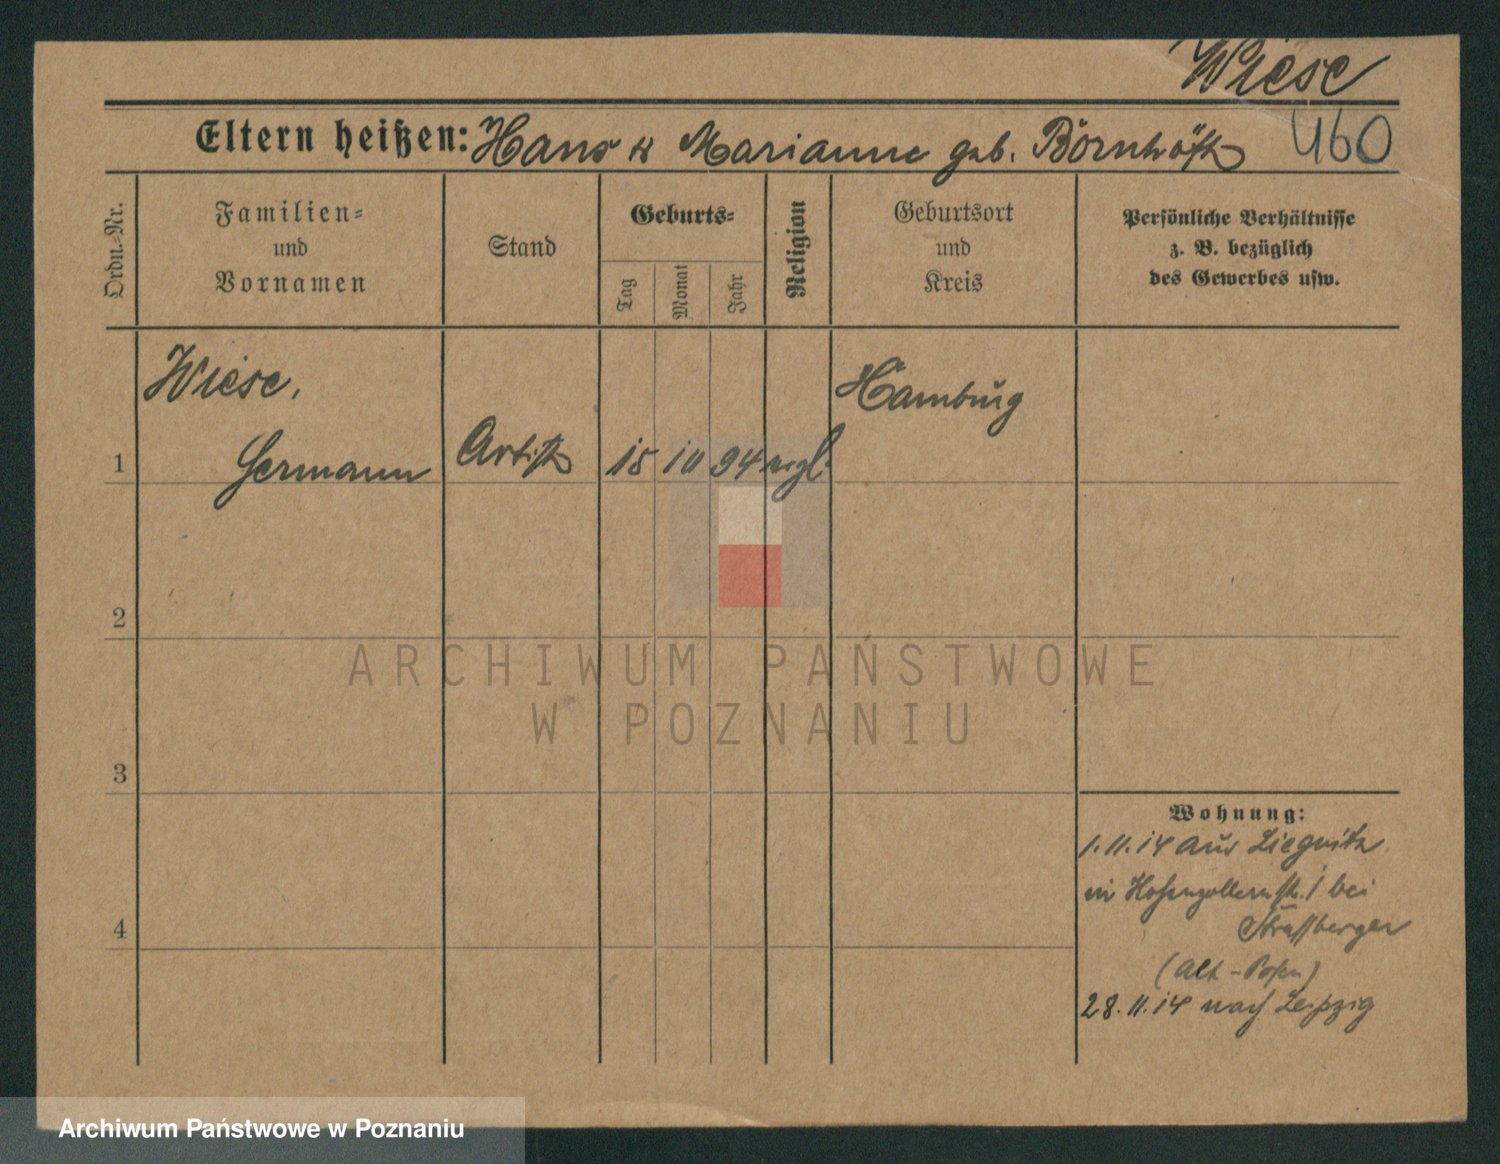 Wiese
Eltern heißen: Hans & Marianne geb. Börnhöft
460
Ordn.-Nr.
Familien-
und
Vornamen
Stand
Geburts-
Tag
Monat
Jahr
Religion
Geburtsort
und
Kreis
Persönliche Verhältnisse
z. B. bezüglich
des Gewerbes usw.
Wiese,
Hamburg
1
Hermann
Artist
15
10
94
2
ARCHIWUM PAŃSTWOWE
W POZNANIU
3
Wohnung:
1.11.14 aus Liegnitz
in Hohenzollernstr. 1 bei
Strassberger
4
(Alt-Posen)
28.11.14 nach Leipzig
Archiwum Państwowe w Poznaniu